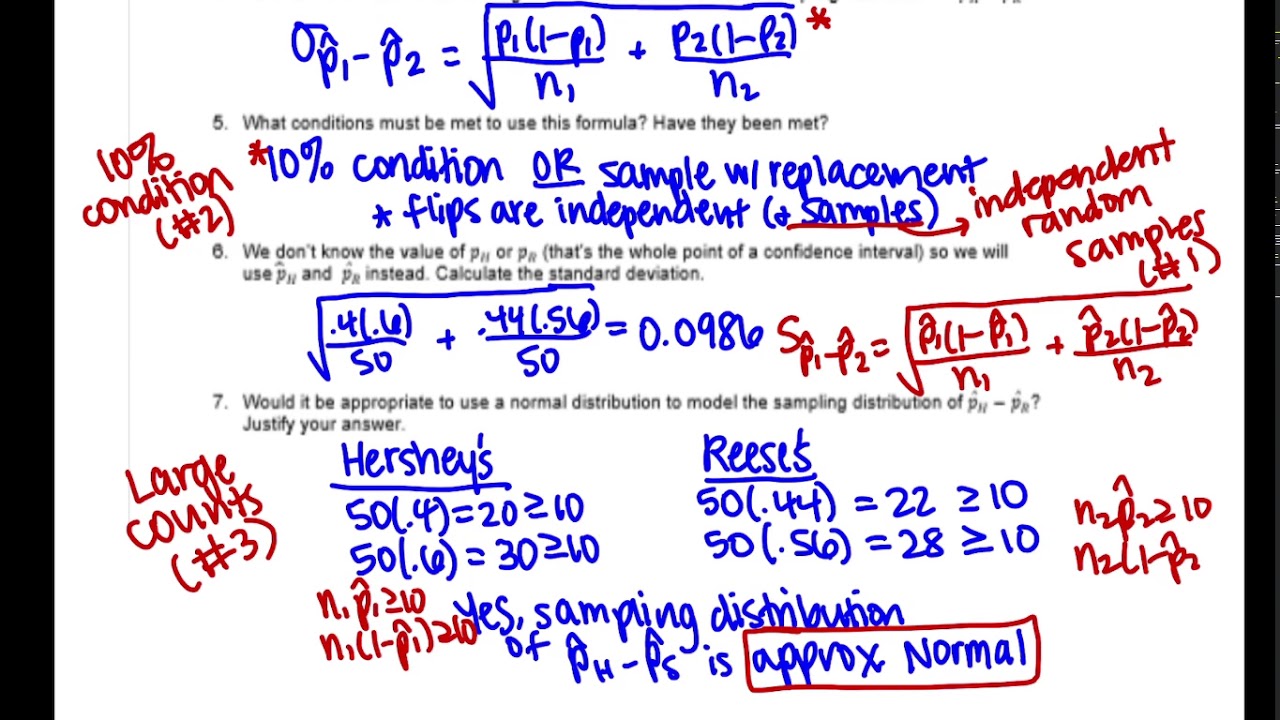 σp̂₁-p̂₂ = √(p₁(1-p₁)/n₁ + p₂(1-p₂)/n₂) *
5. What conditions must be met to use this formula? Have they been met?
10% condition (#2)
*10% condition OR sample w/ replacement
* flips are independent (+ samples) → independent random samples (#1)
6. We don't know the value of pH or pR (that's the whole point of a confidence interval) so we will
use p̂H and p̂R instead. Calculate the standard deviation.
√(.4(.6)/50 + .44(.56)/50) = 0.0986
Sp̂₁-p̂₂ = √(p̂₁(1-p̂₁)/n₁ + p̂₂(1-p̂₂)/n₂)
7. Would it be appropriate to use a normal distribution to model the sampling distribution of p̂H − p̂R?
Justify your answer.
Large counts (#3)
Hershey's
50(.4)=20≥10
50(.6)=30≥10
n₁p̂₁≥10
n₁(1-p̂₁)≥10
Reese's
50(.44) = 22 ≥10
50(.56) = 28 ≥10
n₂p̂₂≥10
n₂(1-p̂₂
Yes, sampling distribution
of p̂H-p̂S is approx Normal